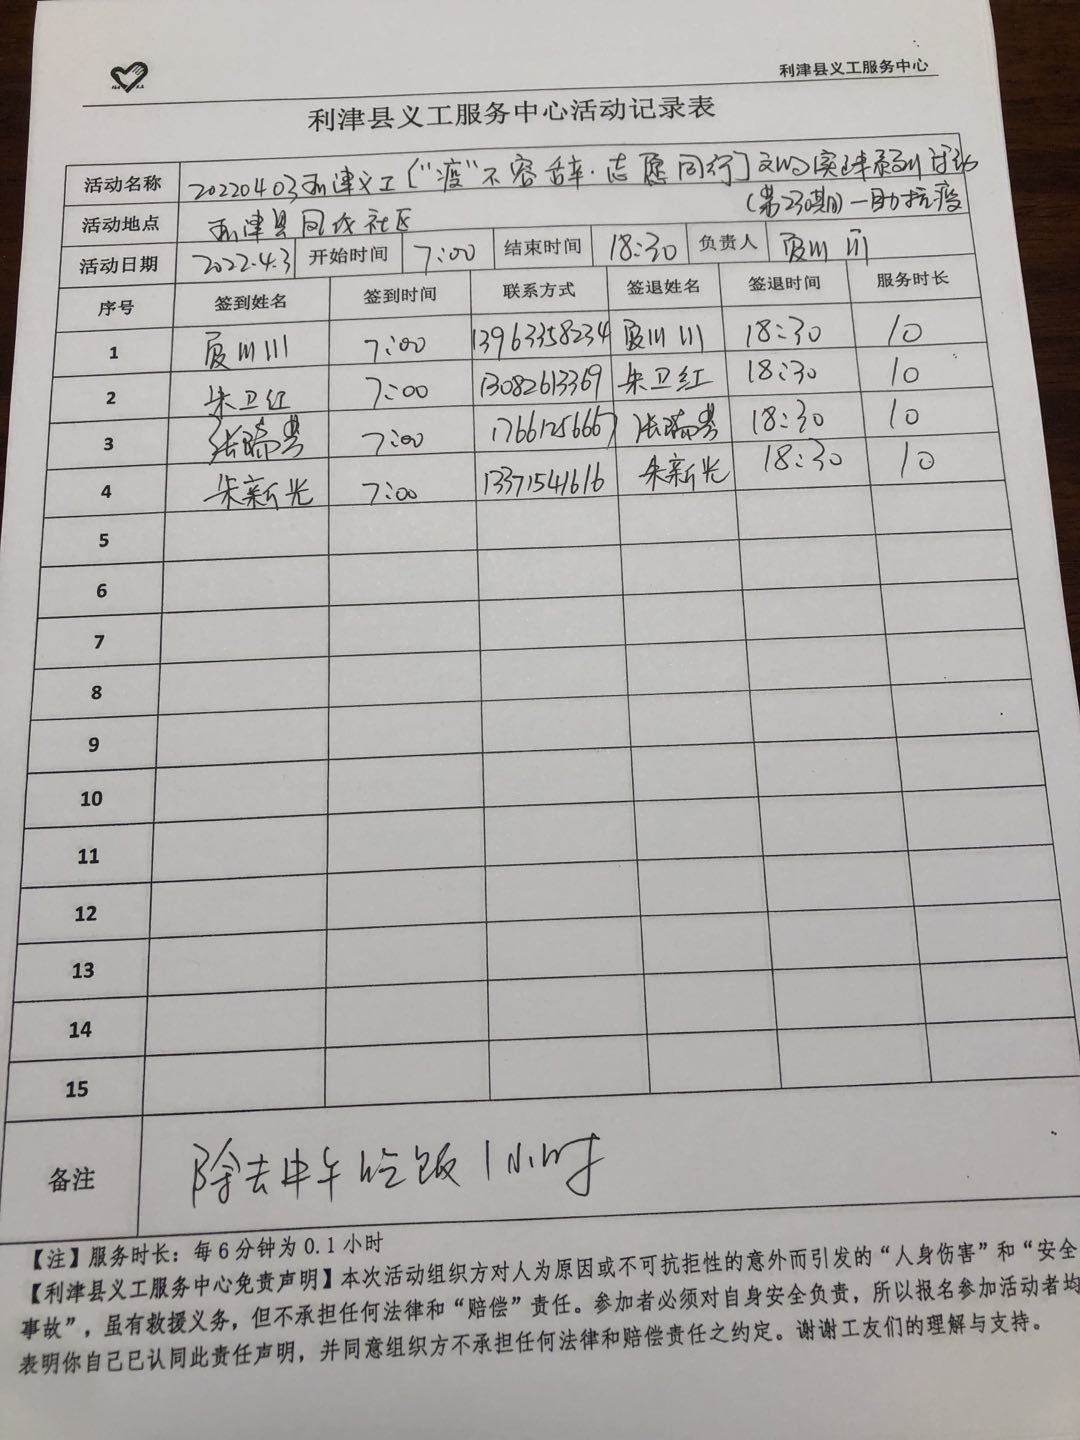 利津县义工服务中心
利津县义工服务中心活动记录表
活动名称 20220403利津义工〔“疫”不容辞·志愿同行〕文明实践系列活动
(第230期)—助力抗疫
活动地点 利津县凤凰社区
活动日期 2022.4.3 开始时间 7:00 结束时间 18:30 负责人
序号 签到姓名 签到时间 联系方式 签退姓名 签退时间 服务时长
1 7:00 13963358234 18:30 10
2 朱卫红 7:00 13082613369 朱卫红 18:30 10
3 张瑞 7:00 17661256667 张瑞 18:30 10
4 朱新光 7:00 13371541616 朱新光 18:30 10
5
6
7
8
9
10
11
12
13
14
15
备注 除去中午吃饭1小时
【注】服务时长：每6分钟为0.1小时
【利津县义工服务中心免责声明】本次活动组织方对人为原因或不可抗拒性的意外而引发的“人身伤害”和“安全
事故”，虽有救援义务，但不承担任何法律和“赔偿”责任。参加者必须对自身安全负责，所以报名参加活动者均
表明你自己已认同此责任声明，并同意组织方不承担任何法律和赔偿责任之约定。谢谢工友们的理解与支持。